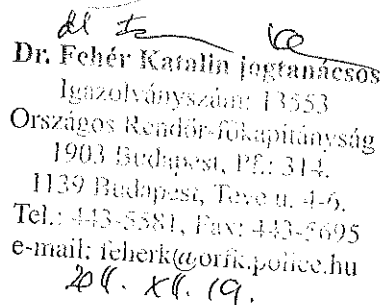 Dr. Fehér Katalin jogtanácsos
Igazolványszám: 13553
Országos Rendőr-főkapitányság
1903 Budapest, Pf.: 314.
1139 Budapest, Teve u. 4-6.
Tel.: 443-5581, Fax: 443-5695
e-mail: feherk@orfk.police.hu
2011. XII. 19.